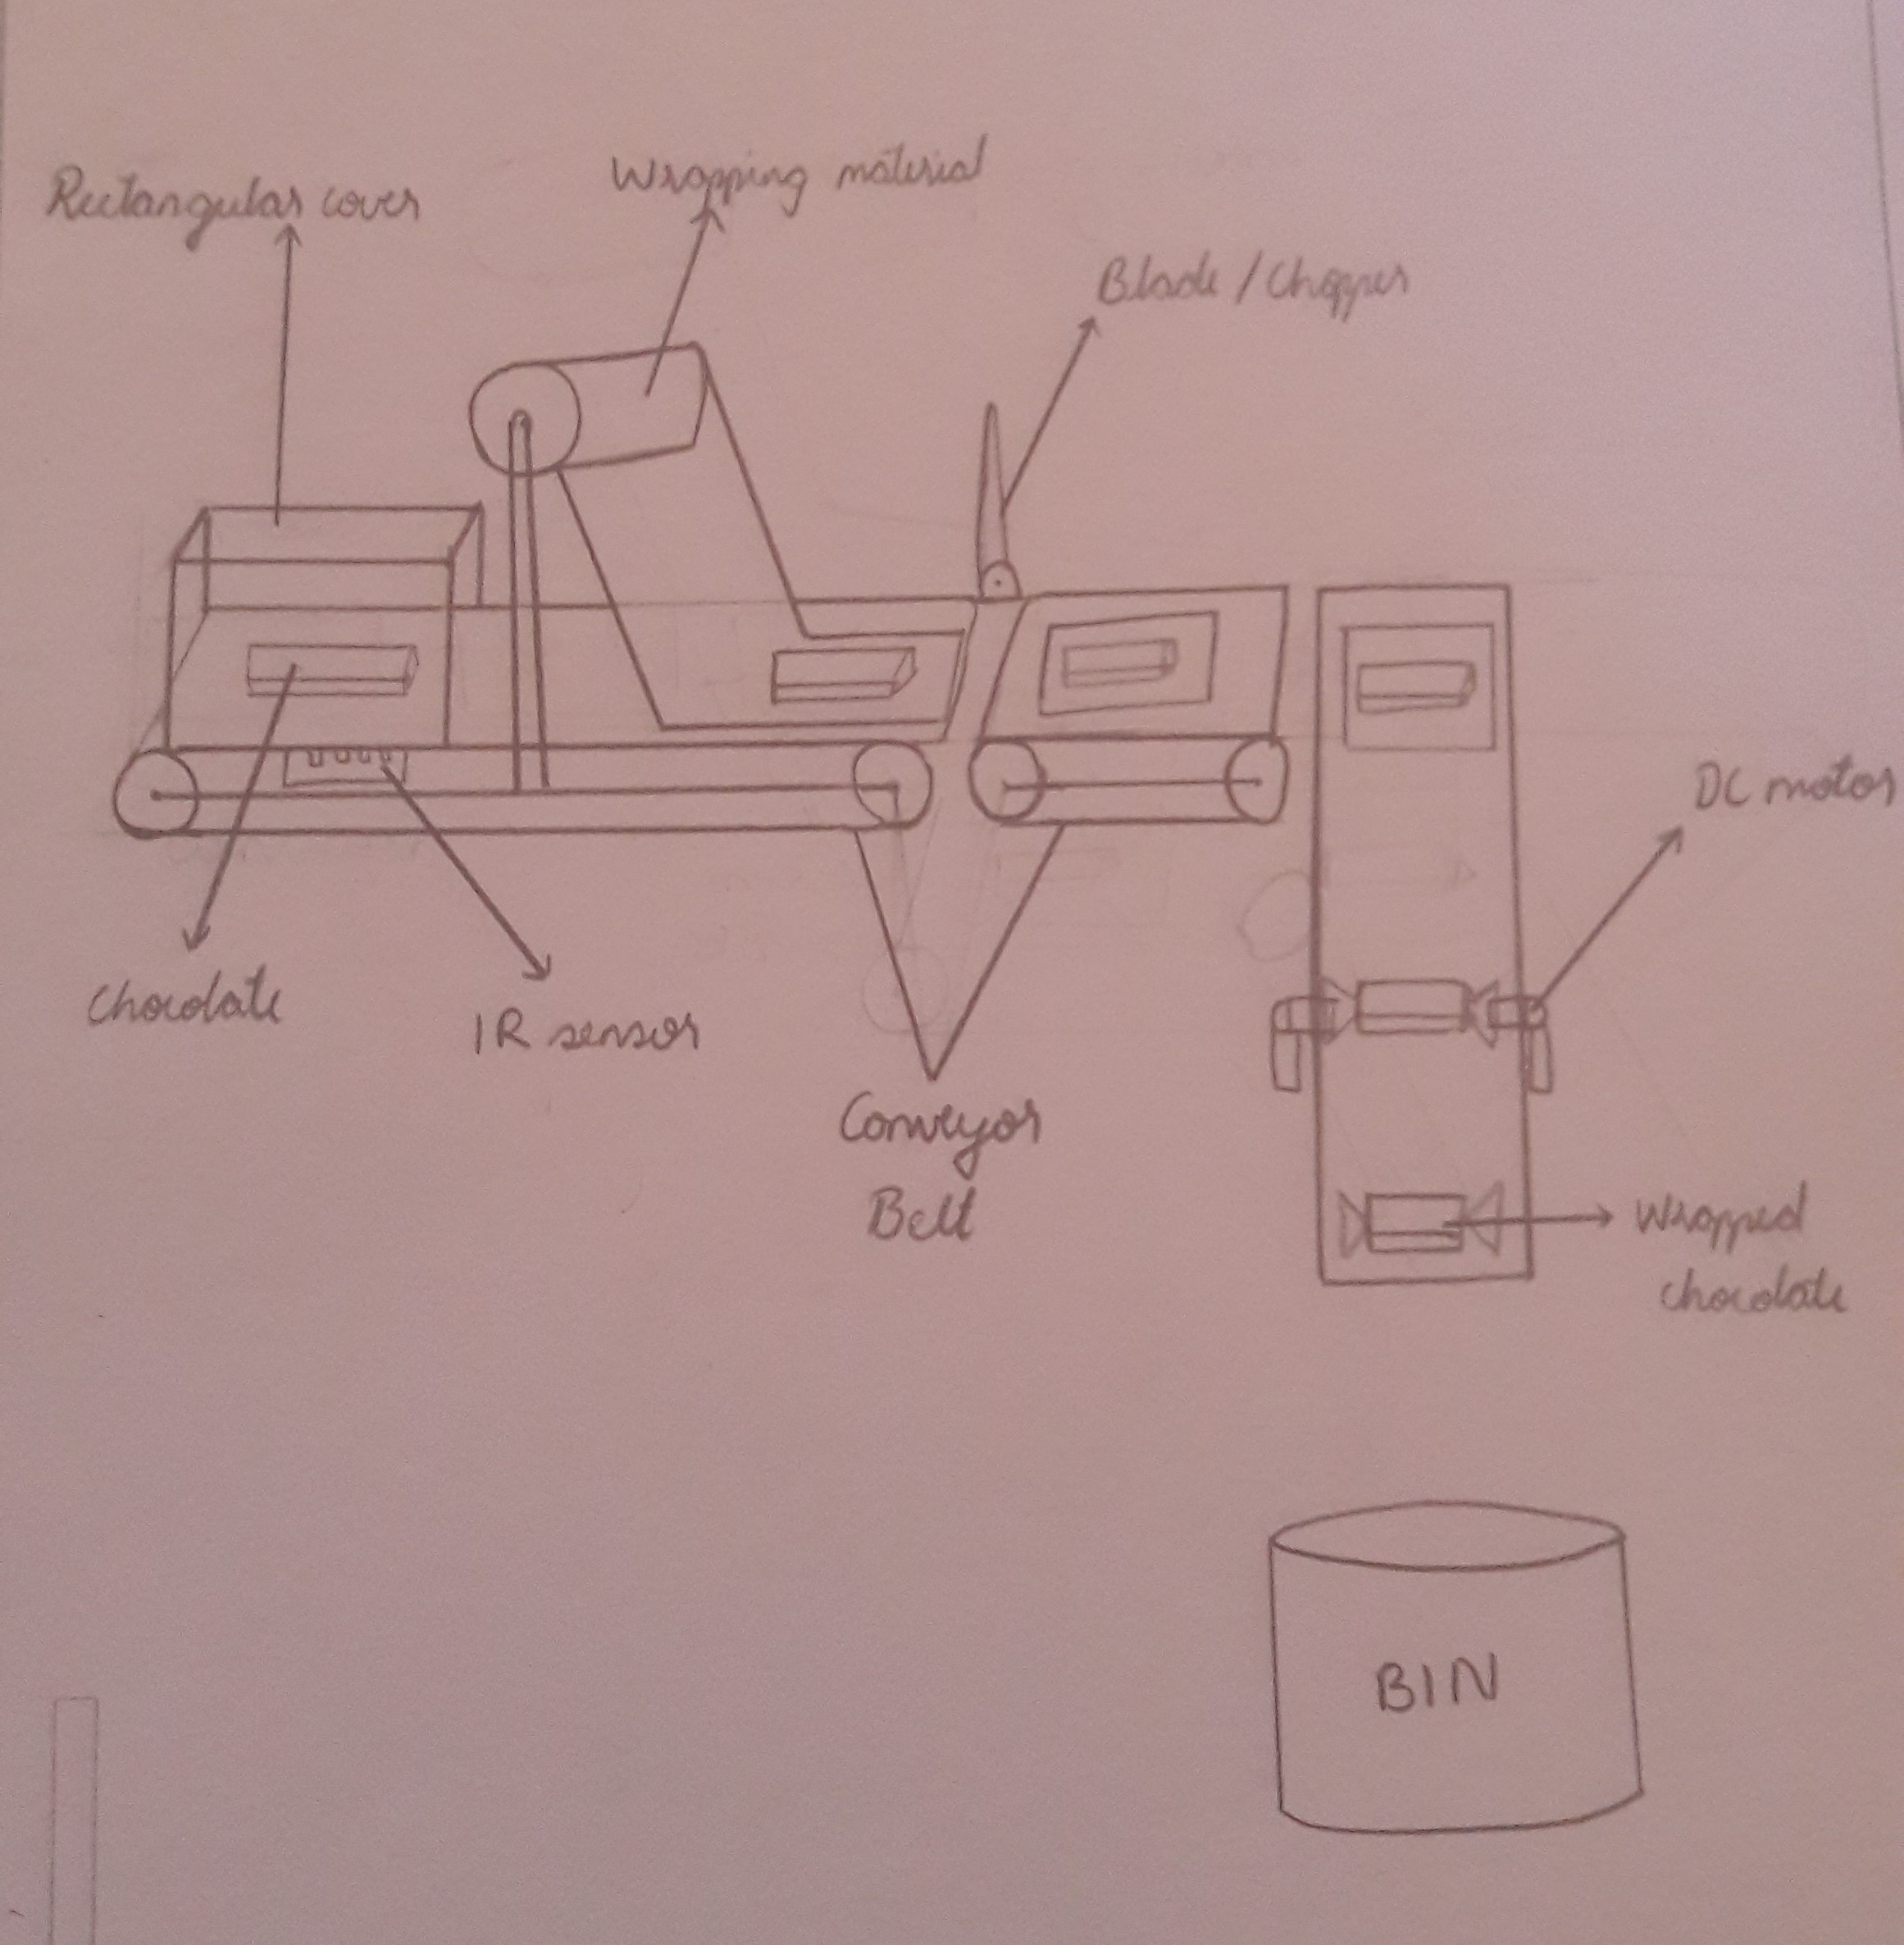 Rectangular cover
Wrapping material
Blade / Chopper
DC motor
Chocolate
IR sensor
Conveyor
Belt
Wrapped
chocolate
BIN